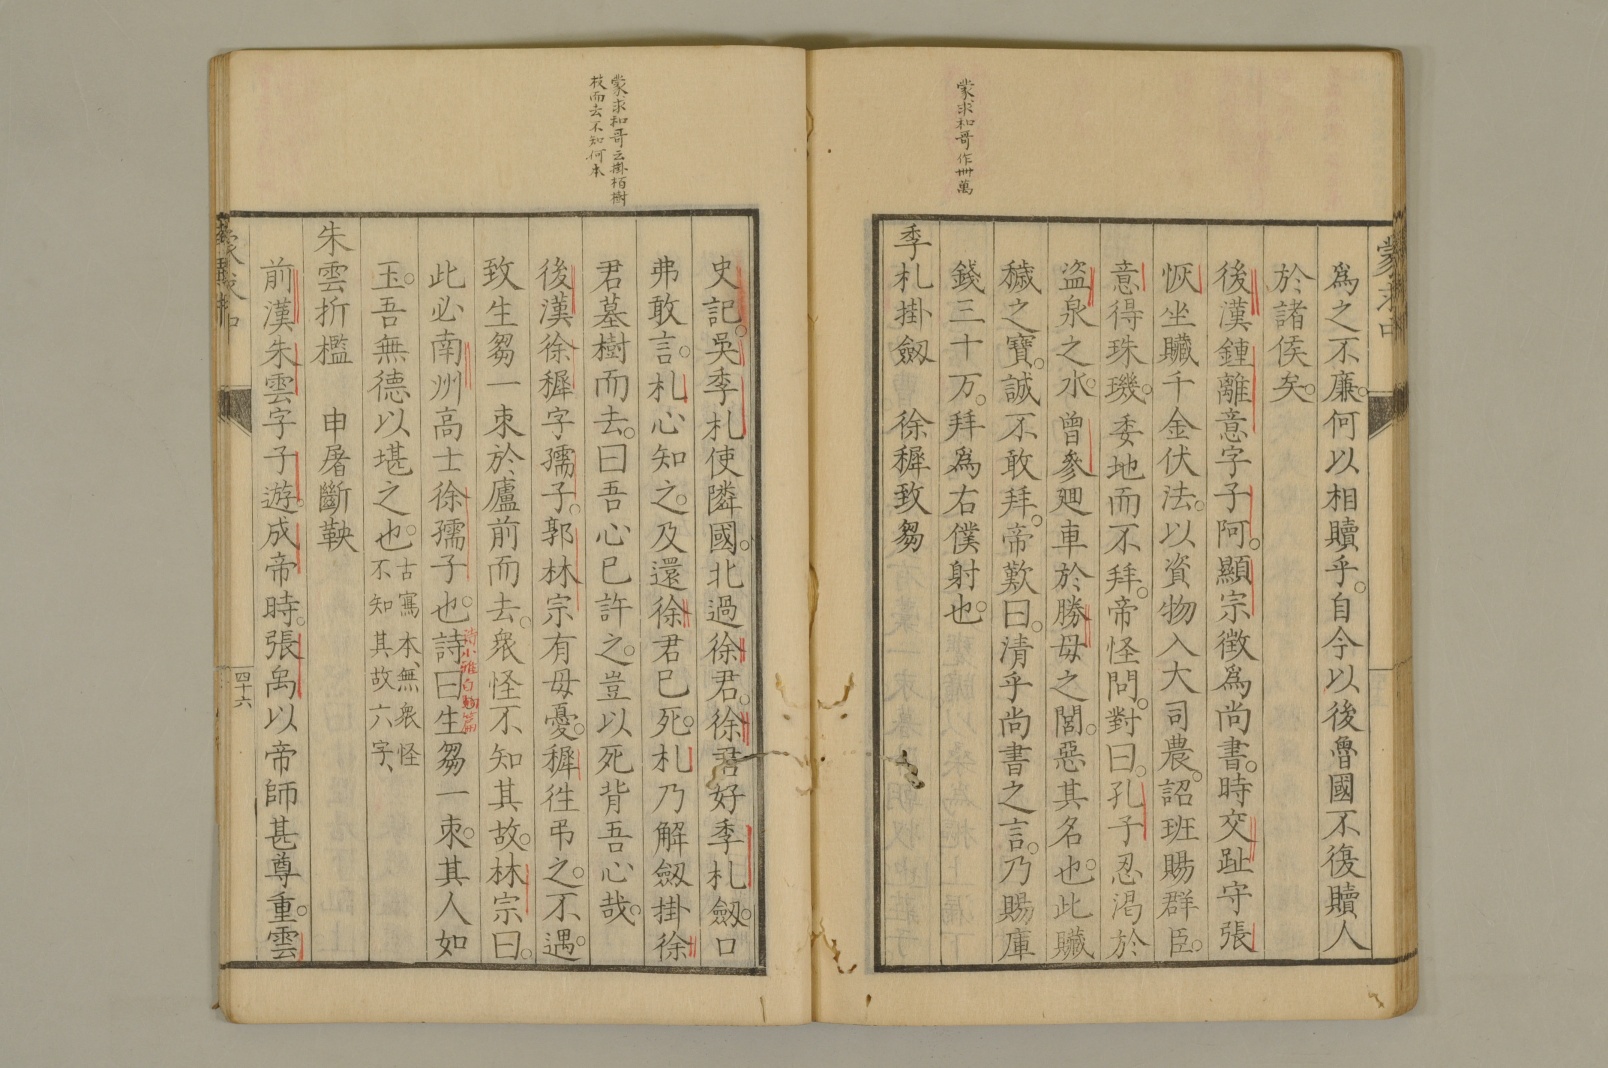 蒙求和哥作卌萬
爲之不廉。何以相贖乎。自今以後魯國不復贖人
於諸侯矣。
後漢鍾離意字子阿。顯宗徵爲尚書。時交趾守張
恢坐贓千金伏法。以資物入大司農。詔班賜群臣。
意得珠璣。委地而不拜。帝怪問。對曰。孔子忍渇於
盗泉之水。曽參廻車於勝母之閭。惡其名也。此贓
穢之寶。誠不敢拜。帝歎曰。清乎尚書之言。乃賜庫
錢三十万。拜爲右僕射也。
季札掛劔　徐穉致芻
蒙求和哥云掛栢樹
枝而去不知何本
史記。吳季札使隣國。北過徐君。徐君好季札劔。口
弗敢言。札心知之。及還徐君已死。札乃解劔掛徐
君墓樹而去。曰吾心已許之。豈以死背吾心哉。
後漢徐穉字孺子。郭林宗有母憂。穉徃弔之。不遇。
致生芻一束於廬前而去。衆怪不知其故。林宗曰。
此必南州高士徐孺子也。詩曰生芻一束。其人如
詩小雅白駒篇
玉。吾無德以堪之也。古寫本、無衆怪
不知其故六字、
朱雲折檻　申屠斷鞅
前漢朱雲字子遊。成帝時。張禹以帝師甚尊重。雲
蒙求中
四十六